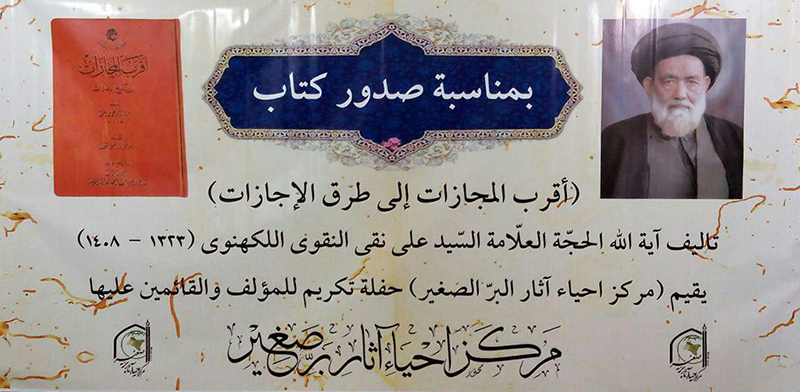 أقرب المجازات
بمناسبة صدور كتاب
(أقرب المجازات إلى طرق الإجازات)
تاليف آية الله الحجّة العلّامة السّيد على نقى النقوى اللكهنوى (١٣٢٣ - ١٤٠٨)
يقيم (مركز احياء آثار البرّ الصغير) حفلة تكريم للمؤلف والقائمين عليها
مركز احياء آثار برّ صغير